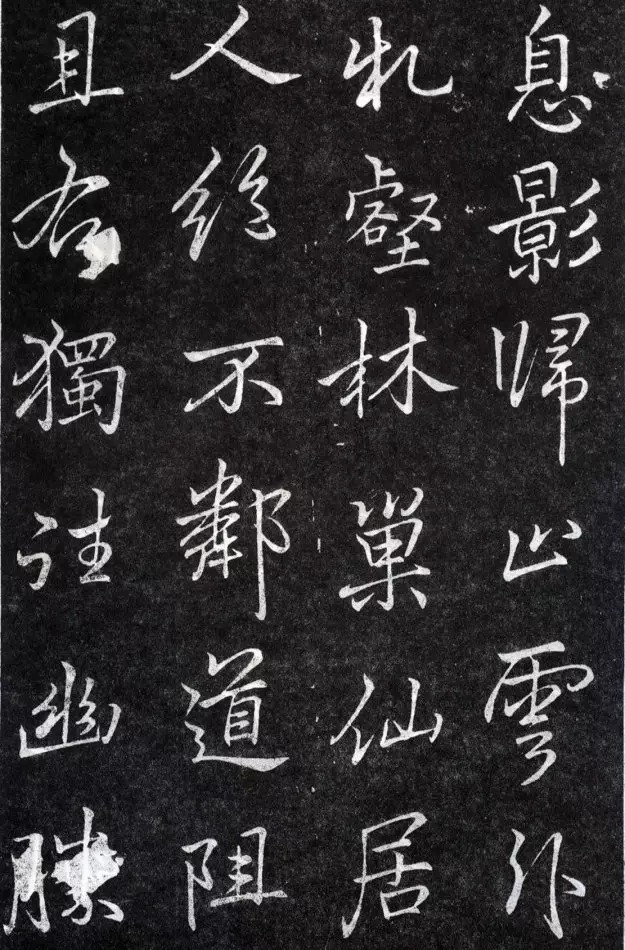 息影歸山雲卧
牝壑林巢仙居
人絶不鄰道阻
且右獨往幽勝